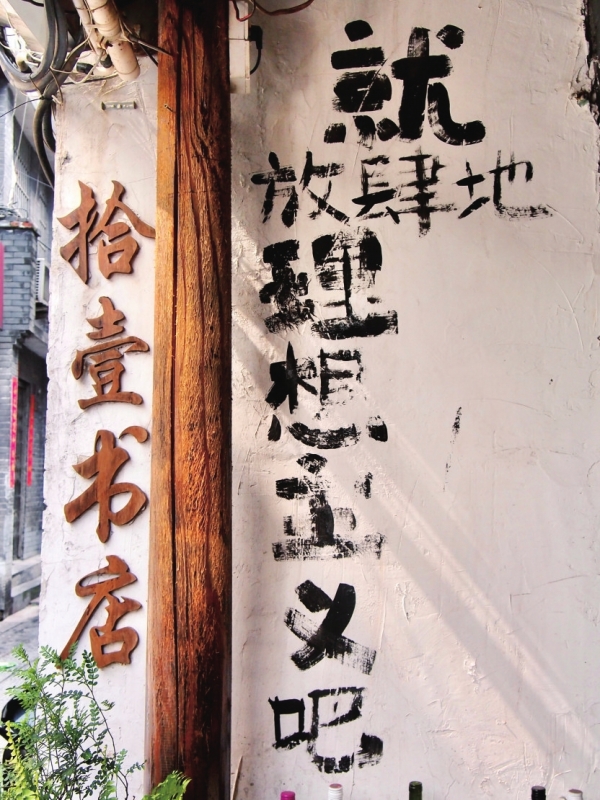 拾壹书店
就
放肆地
理想主义吧